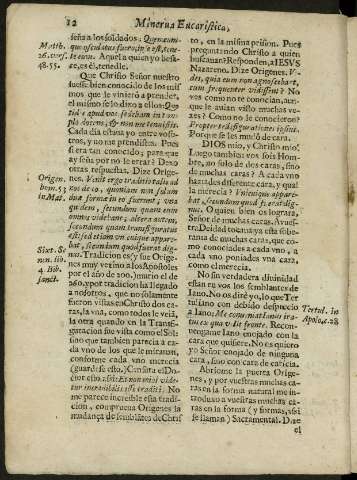 12
Minerva Eucaristica,
seña a los soldados: Quemcum-
que osculatus fuero, ipse est, tene-
te eum. Aquel a quien yo besa-
re, es el, tenedle.
Que Christo Señor nuestro
fuesse bien conocido de los mis-
mos que le vinieró a prender,
el mismo se lo dixo a ellos: Quo-
tidie apud vos sedebam in tem-
plo docens, & non me tenuistis.
Cada dia estaua yo entre voso-
tros, y no me prendistis. Pues
si era tan conocido; para que
ay seña por no le errar? Doxo
otras respuestas. Dize Orige-
nes. Venit ergo traditio talis ad
nos de eo, quoniam non solùm
duæ formæ in eo fuerunt; vna
quidem, secundum quam eum
omnes videbant; altera autem,
secundum quam transfiguratus
est: sed etiam vnicuique appare-
bat, secundum quod fuerat dig-
nus. Tradicion es; y fue Orige-
nes muy vezino a los Apostoles
por el año de 200. Murio el de
260. y por tradicion ha llegado
a nosotros, que no solamente
fueron vistas en Christo dos ca-
ras, la vna, como todos le veiã,
la otra quando en la Transfi-
guracion fue visto como el Sol:
sino que tambien parecia à ca-
da vno de los que le mirauan,
conforme cada vno merecia
(guardese esto.) Confirma el Do-
ctor esto assi: Et non mihi vide-
tur incredibilis esse traditio: No
me parece increible esta tradi-
cion, comprueua Origenes la
mudança de semblãtes de Chris
Matth.
26. vers.
48. 55.
Origen.
hom. 53
in Mat.
Sixt. Se-
nen. lib.
4 Bib.
sanct.
to, en la misma prision. Pues
preguntando Christo a quien
buscauan? Responden, a IESVS
Nazareno. Dize Origenes. Vi-
des, quia eum non agnoscebant,
cum frequenter vidissent? No
ves como no te conocian, aun-
que le auian visto muchas ve-
zes? Como no le conocieron?
Propter transfigurationes ipsius.
Porque se les mudó de cara.
DIOS mio, y Christo mio!
Luego tambien vos sois Hom-
bre, no solo de dos caras, sino
de muchas caras? A cada vno
hazades diferente cara, y qual
la merecia? Vnicuique appare-
bat secundum quod fuerat dig-
nus. O quanto bien os lograra,
Señor de muchas caras. A vues-
tra Deidad tocaua ya esta sobe-
rania de muchas caras, que co-
mo conociades a cada vno, a
cada vno poniades vna cara,
como el merecia.
No sin verdadera diuinidad
están ra vos los semblantes de
Iano. No os diré yo, lo que Ter
tuliano con doblado desprecio
a Iano: Me conuulationo ira-
tus ex qua velit fronte. Recon-
pengame Iano enojado con la
cara que quisiere. No es quiero
yo Señor enojado de ninguna
cara, sino con cada de caricia.
Abriome la puerta Orige-
nes, y por vuestras muchas ca-
ras en la forma natural me in-
troduxo a vuestras muchas ca-
ras en la forma (y formas, assi
se llaman) Sacramental. Dize
el
Tertul. in
Apolo. c. 28